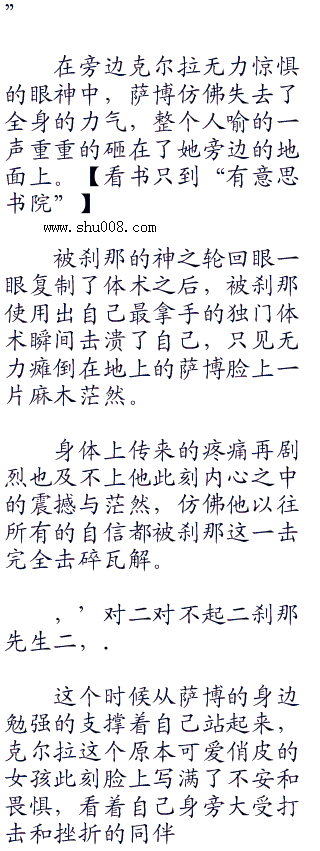 ”
在旁边克尔拉无力惊惧
的眼神中，萨博仿佛失去了
全身的力气，整个人喻的一
声重重的砸在了她旁边的地
面上。【看书只到“有意思
书院”】
www.shu008.com
被刹那的神之轮回眼一
眼复制了体术之后，被刹那
使用出自己最拿手的独门体
术瞬间击溃了自己，只见无
力瘫倒在地上的萨博脸上一
片麻木茫然。
身体上传来的疼痛再剧
烈也及不上他此刻内心之中
的震撼与茫然，仿佛他以往
所有的自信都被刹那这一击
完全击碎瓦解。
，’对二对不起二刹那
先生二，．
这个时候从萨博的身边
勉强的支撑着自己站起来，
克尔拉这个原本可爱俏皮的
女孩此刻脸上写满了不安和
畏惧，看着自己身旁大受打
击和挫折的同伴